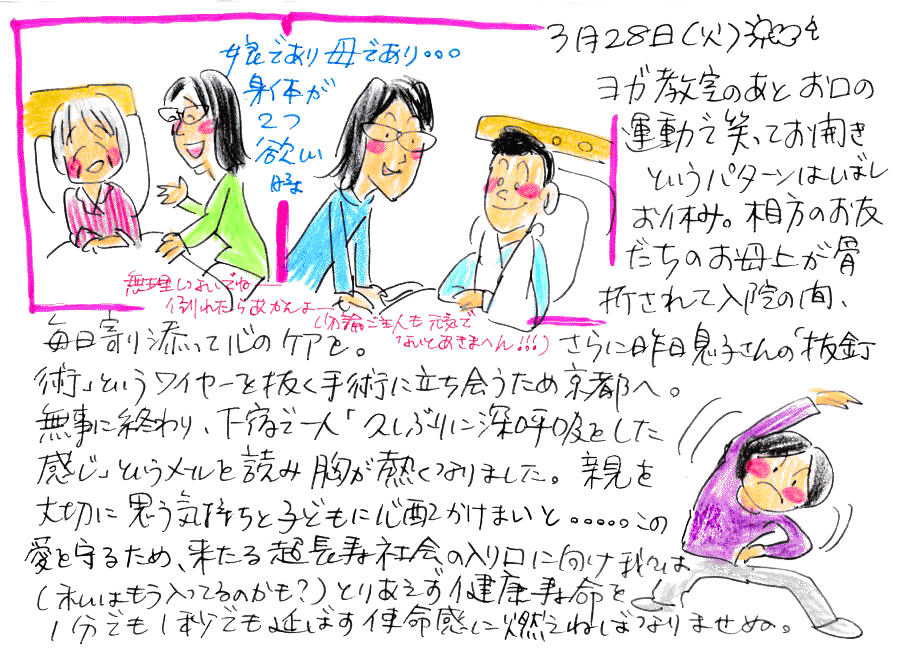 3月28日(火)
娘であり母であり・・・
身体が
2つ
欲しい
時よ
無理しないでね―
倒れたらあかんよ―
(勿論ご主人も元気で
ないとあきまへん!!!)
ヨガ教室のあとお口の
運動で笑ってお開き
というパターンはしばし
お休み。相方のお友
だちのお母上が骨
折されて入院の間、
毎日寄り添って心のケアを。
さらに昨日息子さんの「抜釘
術」というワイヤーを抜く手術に立ち会うため京都へ。
無事に終わり、下宿で一人「久しぶりに深呼吸をした
感じ」というメールを読み胸が熱くなりました。親を
大切に思う気持ちと子どもに心配かけまいと・・・・・この
愛を守るため、来たる超長寿社会の入り口に向け我々は
(私はもう入ってるのかも?)とりあえず健康寿命を
1分でも1秒でも延ばす使命感に燃えねばなりませぬ。